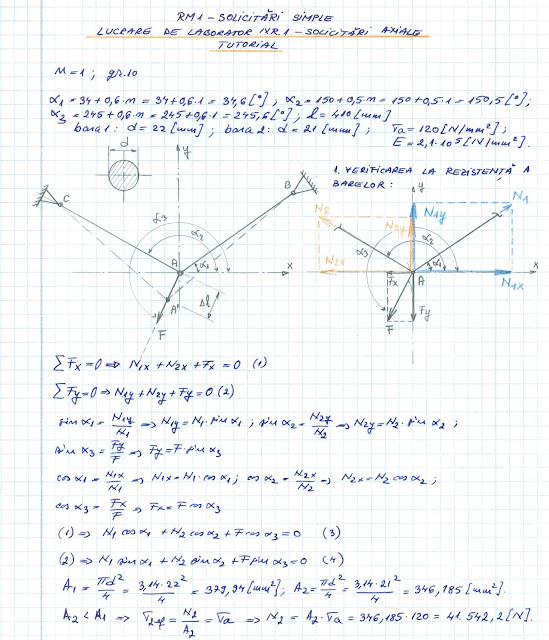 RM1 - SOLICITĂRI SIMPLE
LUCRARE DE LABORATOR NR.1 - SOLICITĂRI AXIALE
TUTORIAL
m = 1 ; gr.10
α1 = 34+0,6·m = 34+0,6·1 = 34,6 [°] ; α2 = 150+0,5·m = 150+0,5·1 = 150,5 [°] ;
α3 = 245+0,6·m = 245+0,6·1 = 245,6 [°] ; l = 410 [mm]
bara 1 : d = 22 [mm] ; bara 2 : d = 21 [mm] ; σa = 120 [N/mm²] ;
E = 2,1·10⁵ [N/mm²].
d
y
C
B
α3
α2
α1
A
x
A'
Δl
F
1. VERIFICAREA LA REZISTENȚĂ A
BARELOR :
y
N1
N2
N2y
N1y
α3
α2
α1
x
N2x
Fx
A
N1x
F
Fy
∑Fx = 0 ⇒ N1x + N2x + Fx = 0 (1)
∑Fy = 0 ⇒ N1y + N2y + Fy = 0 (2)
sin α1 = N1y/N1 ⇒ N1y = N1 · sin α1 ; sin α2 = N2y/N2 ⇒ N2y = N2 · sin α2 ;
sin α3 = Fy/F ⇒ Fy = F · sin α3
cos α1 = N1x/N1 ⇒ N1x = N1 · cos α1 ; cos α2 = N2x/N2 ⇒ N2x = N2 cos α2 ;
cos α3 = Fx/F ⇒ Fx = F cos α3
(1) ⇒ N1 cos α1 + N2 cos α2 + F cos α3 = 0 (3)
(2) ⇒ N1 sin α1 + N2 sin α2 + F sin α3 = 0 (4)
A1 = πd²/4 = 3,14·22²/4 = 379,94 [mm²] ; A2 = πd²/4 = 3,14·21²/4 = 346,185 [mm²].
A2 < A1 ⇒ σ2ef = N2/A2 = σa ⇒ N2 = A2 · σa = 346,185 · 120 = 41.542,2 [N].